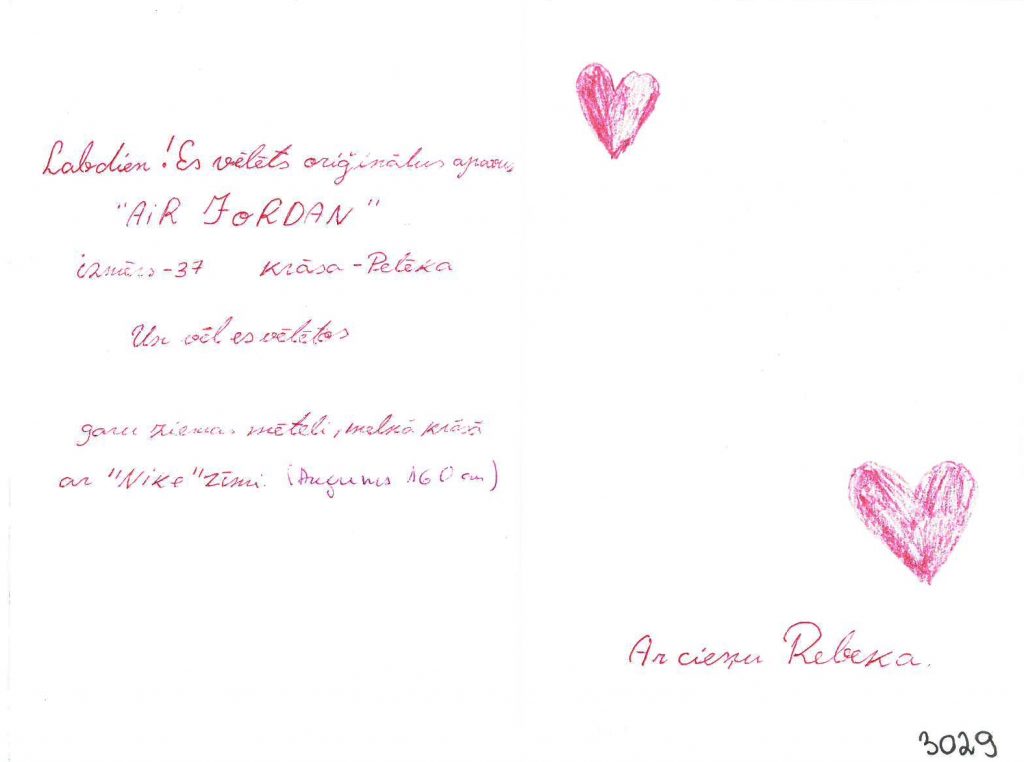 Labdien! Es vēlēts oriģinālus apavus
"AiR JoRDAN"
izmērs-37 krāsa-Pelēka
Un vēl es vēlētos
garu ziemas mēteli, melnā krāsā
ar "Nike" zīmi. (Augums 160 cm)
Ar cieņu Rebeka.
3029